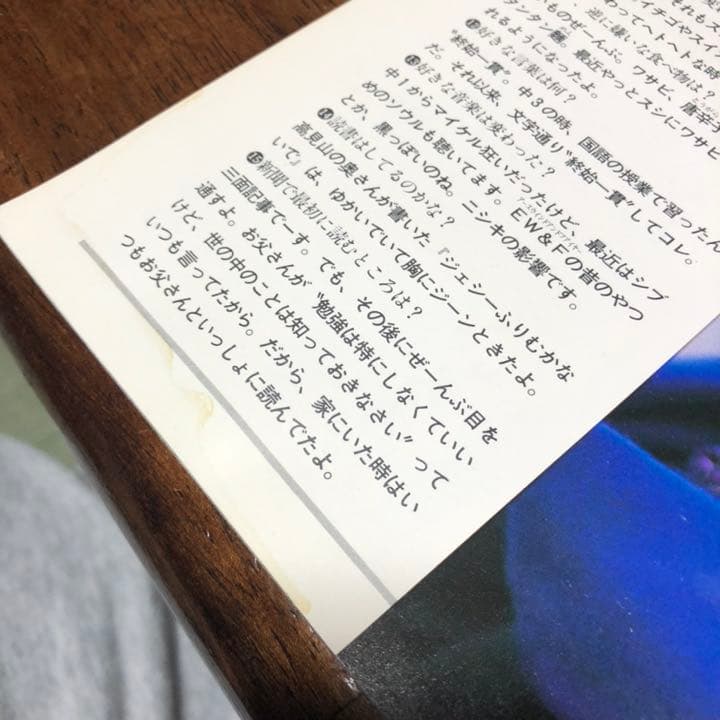 イチゴやスイ
わってヘトヘトな時
逆に嫌いな食べ物は?
ものぜーんぶ。ワサビ、唐辛子
タンタン麺。最近やっとスシにワサビ
れるようになったよ。
好きな言葉は何?
“終始一貫”。中3の時、国語の授業で習ったん
だ。それ以来、文字通り“終始一貫”してコレ。
⑬好きな音楽は変わった?
中1からマイケル狂いだったけど、最近はシブ
めのソウルも聴いてます。EW&Fの昔のやつ
とか、黒っぽいのね。ニシキの影響です。
⑭読書はしてるのかな?
高見山の奥さんが書いた『ジェシーふりむかな
いで』は、ゆかいでいて胸にジーンときたよ。
⑮新聞で最初に読むところは?
三面記事でーす。でも、その後にぜーんぶ目を
通すよ。お父さんが“勉強は特にしなくていい
けど、世の中のことは知っておきなさい”って
いつも言ってたから。だから、家にいた時はい
つもお父さんといっしょに読んでたよ。